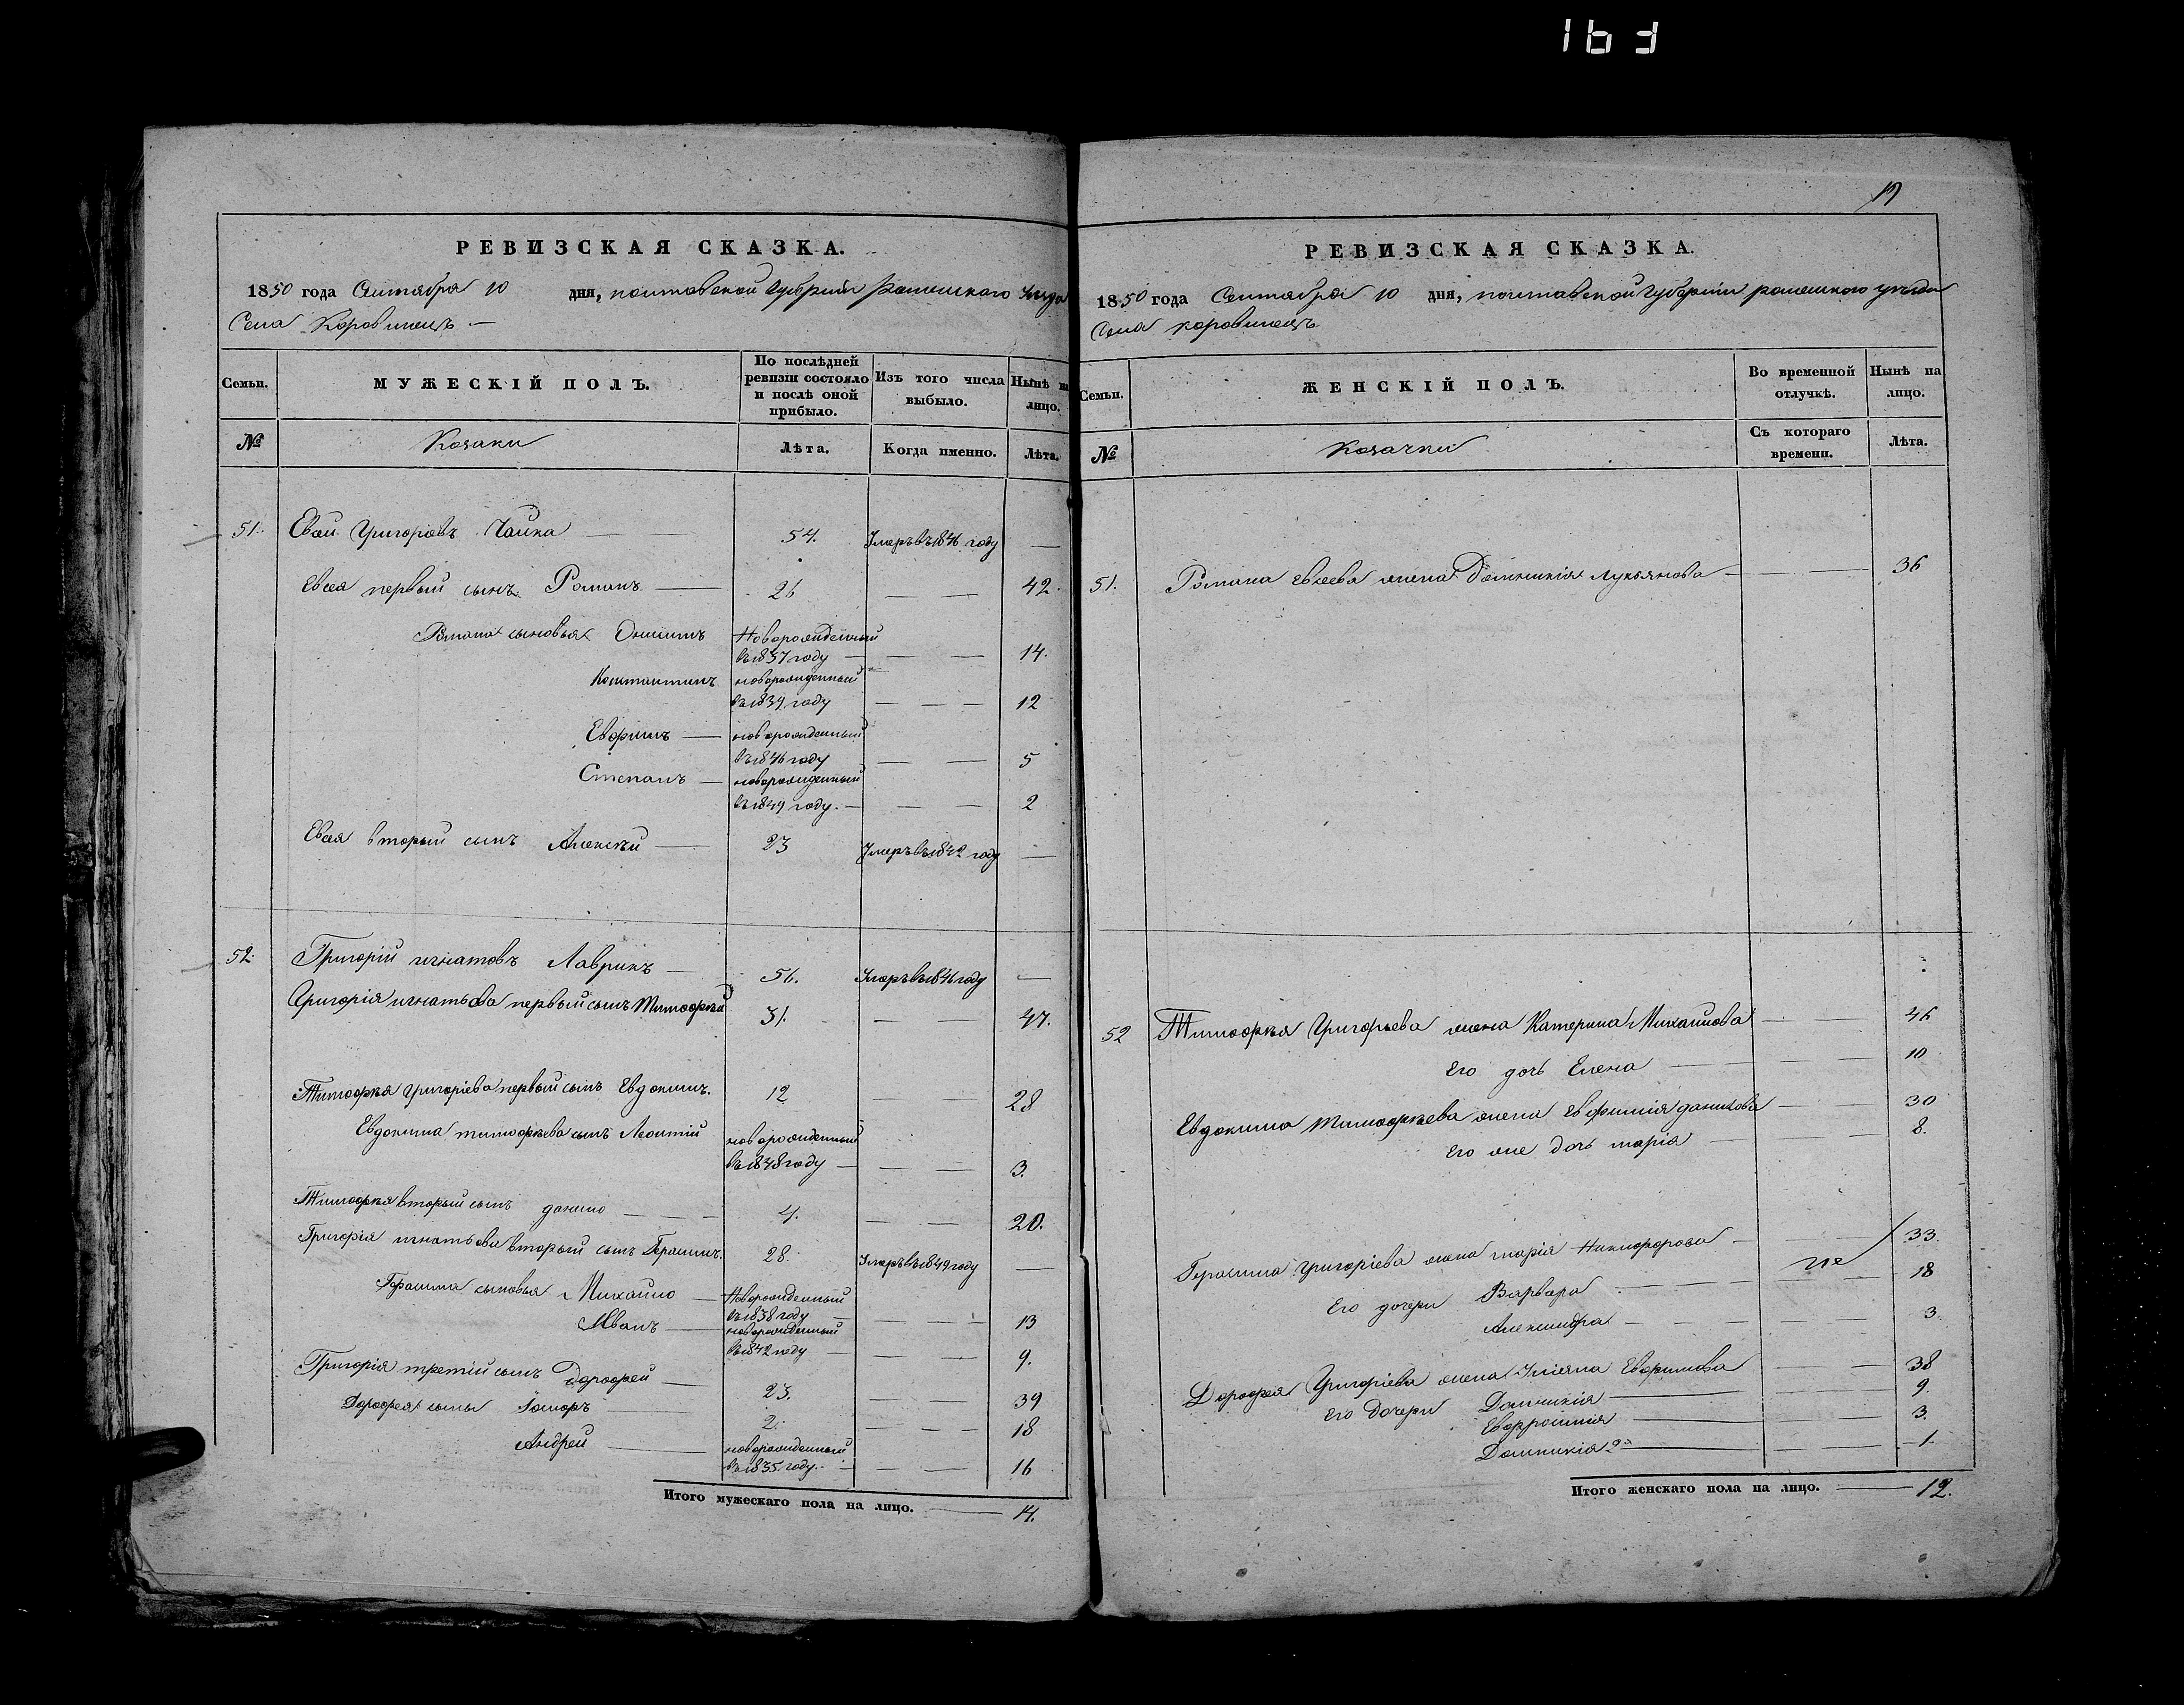 163
РЕВИЗСКАЯ СКАЗКА.
1850 года Сентября 10 дня, полтавской Губернии Роменского Уезда
Села Коровинецъ.
Семьи. МУЖЕСКІЙ ПОЛЪ. По послѣдней ревизіи состояло и послѣ оной прибыло. Изъ того числа выбыло. Нынѣ на лицо.
№ Козаки Лѣта. Когда именно. Лѣта.
51. Евсей Григоріевъ Чайка 54. Умеръ въ 1846 году
Евсея первый сынъ Романъ 26 42.
Романа сыновья Онисимъ Новорожденный
въ 1837 году 14.
Константинъ новорожденный
въ 1839 году 12
Евфимъ новорожденный
въ 1846 году 5
Степанъ новорожденный
въ 1849 году. 2
Евсея вторый сынъ Алексѣй 23 Умеръ въ 1842 году
52. Григорій игнатовъ Лаврикъ 56. Умеръ въ 1846 году
Григорія игнатьева первый сынъ Тимофѣй 31. 47.
Тимофѣя Григоріева первый сынъ Евдокимъ. 12 28
Евдокима тимофѣева сынъ Леонтій новорожденный
въ 1848 году 3.
Тимофѣя вторый сынъ данило 4. 20.
Григорія игнатьева вторый сынъ Герасимъ. 28. Умеръ въ 1849 году
Герасима сыновья Михайло Новорожденный
въ 1838 году 13
Иванъ новорожденный
въ 1842 году 9.
Григорія третій сынъ Дорофей 23. 39
Дорофея сыны 2. 18
Андрей новорожденный
въ 1835 году. 16
Итого мужескаго пола на лицо. 14.
19
РЕВИЗСКАЯ СКАЗКА.
1850 года Сентября 10 дня, полтавской Губерніи роменского уѣзда
Села коровинецъ
Семьи. ЖЕНСКІЙ ПОЛЪ. Во временной отлучкѣ. Нынѣ на лицо.
№ Козачки Съ котораго времени. Лѣта.
51. Романа Евсеева жена Домникія Лукьянова 36
52 Тимофѣя Григорьева жена Катерина Михайлова 46
Его дочь Елена 10
Евдокима тимофѣева жена Евфимія данилова 30
Его же дочь марія 8.
Герасима Григоріева жена марія Никифорова 33.
Его дочери Варвара 18
Александра 3
Дорофея Григоріева жена Уліяна Евфимова 38
Его дочери Домникія 9.
Евфросинія 3.
Домникія 2я 1.
Итого женскаго пола на лицо. 12.